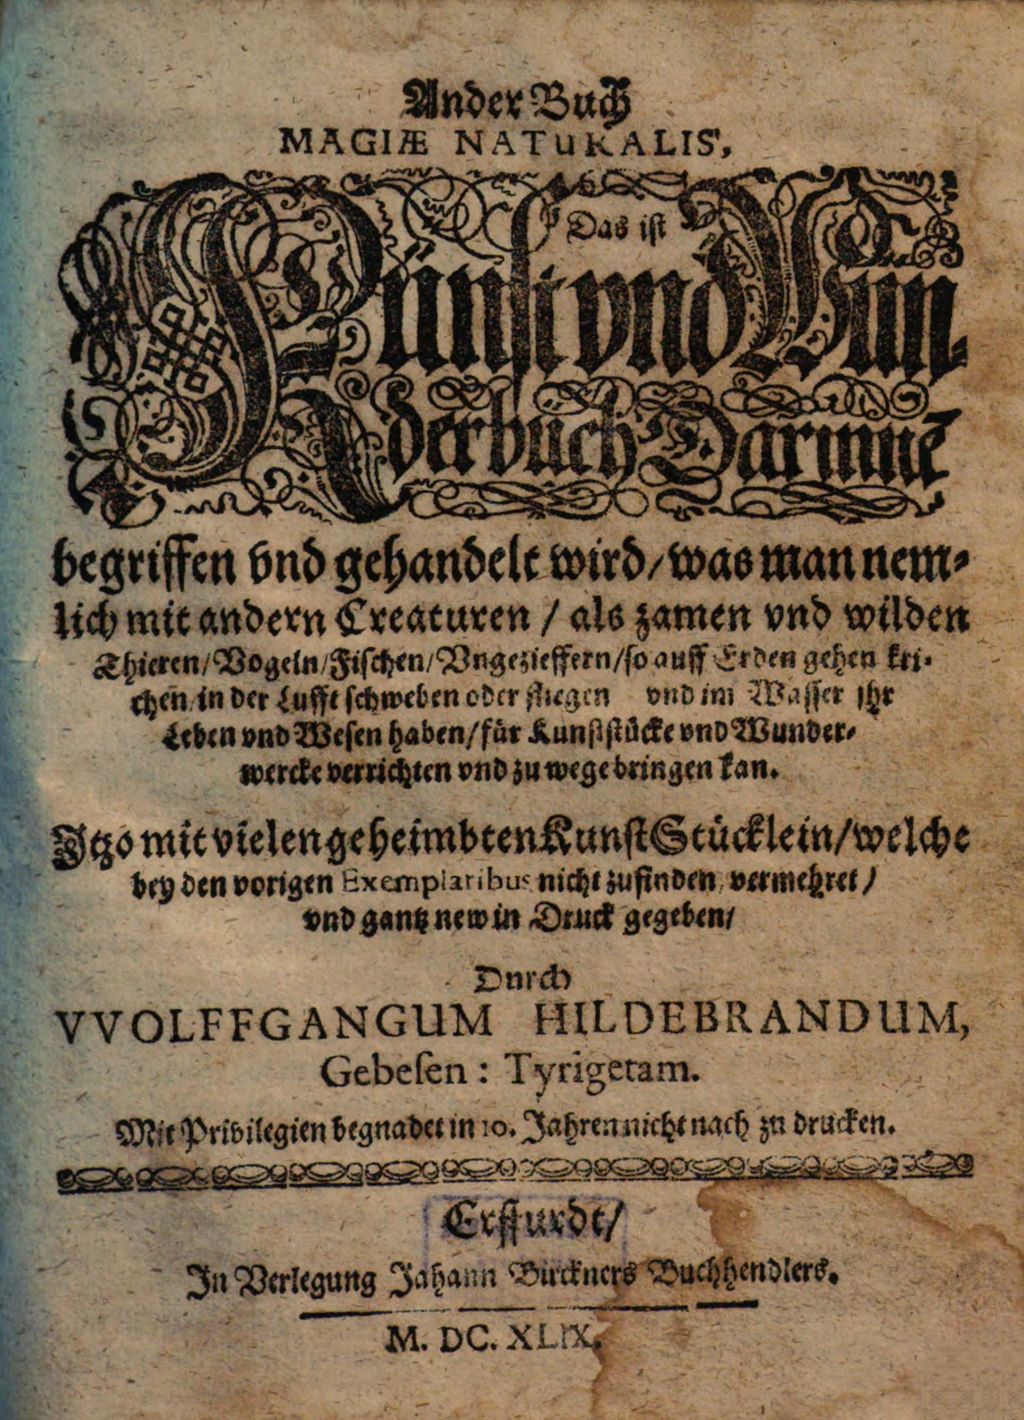 Ander Buch
MAGIÆ NATURALIS,
Das ist
Künst vnd Wun-
derbuch Darinnē
begriffen vnd gehandelt wird/was man nem-
lich mit andern Creaturen / als zamen vnd wilden
Thieren/Vogeln/Fischen/Vngezieffern/so auff Erden gehen kri-
chen/in der Lufft schweben oder fliegen vnd im Wasser jhr
Leben vnd Wesen haben/für Kunststücke vnd Wunder-
wercke verrichten vnd zu wege bringen kan.
Jtzo mit vielen geheimbten Kunst Stücklein/welche
bey den vorigen Exemplaribus nicht zufinden, vermehret/
vnd gantz new in Druck gegeben/
Durch
VVOLFFGANGUM HILDEBRANDUM,
Gebesen: Tyrigetam.
Mit Privilegien begnadet in 10. Jahren nicht nach zu drucken.
Erffurdt/
Jn Verlegung Jahann Birckners Buchhendlers.
M. DC. XLIX.